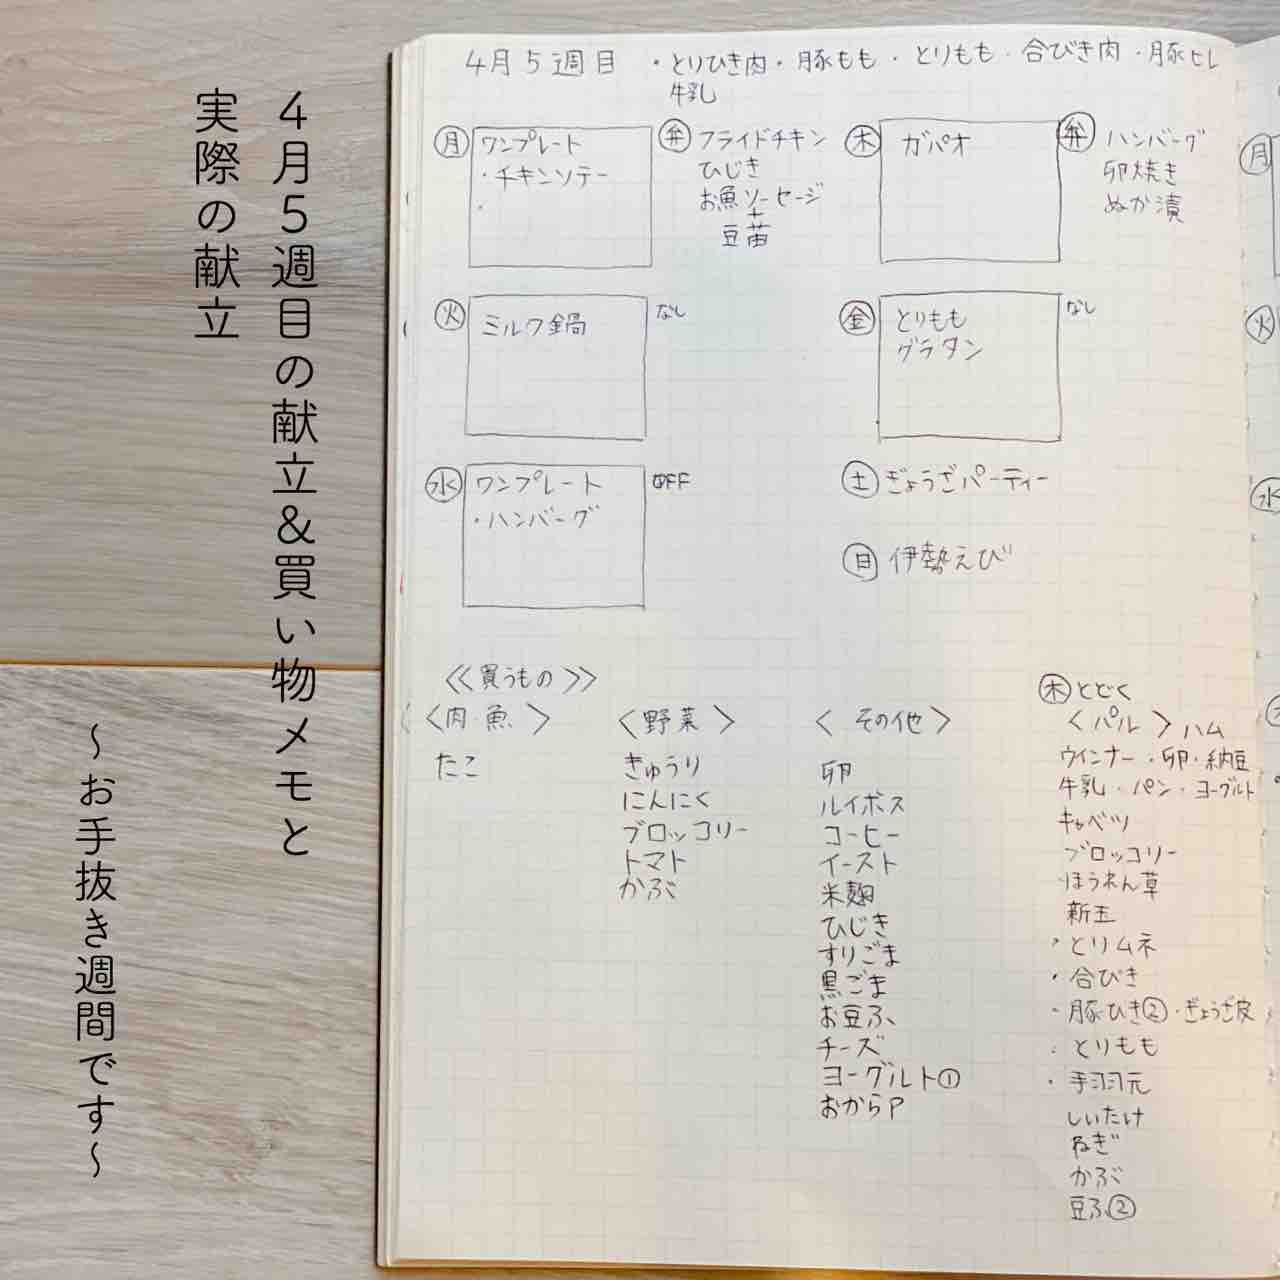 4月5週目の献立&買い物メモと
実際の献立
〜お手抜き週間です〜
4月5週目 ・とりひき肉・豚もも・とりもも・合びき肉・豚ヒレ
牛乳
月 ワンプレート
・チキンソテー
・
弁 フライドチキン
ひじき
お魚ソーセージ
+
豆苗
木 ガパオ
弁 ハンバーグ
卵焼き
ぬか漬
火 ミルク鍋
なし
金 とりもも
グラタン
なし
水 ワンプレート
・ハンバーグ
OFF
土 ぎょうざパーティー
日 伊勢えび
≪買うもの≫
〈肉・魚〉
たこ
〈野菜〉
きゅうり
にんにく
ブロッコリー
トマト
かぶ
〈その他〉
卵
ルイボス
コーヒー
イースト
米麹
ひじき
すりごま
黒ごま
お豆ふ
チーズ
ヨーグルト①
おからP
木 とどく
〈パル〉ハム
ウインナー・卵・納豆
牛乳・パン・ヨーグルト
キャベツ
ブロッコリー
ほうれん草
新玉
・とりムネ
・合びき
・豚ひき②・ぎょうざ皮
・とりもも
・手羽元
しいたけ
ねぎ
かぶ
豆ふ②
月
火
水